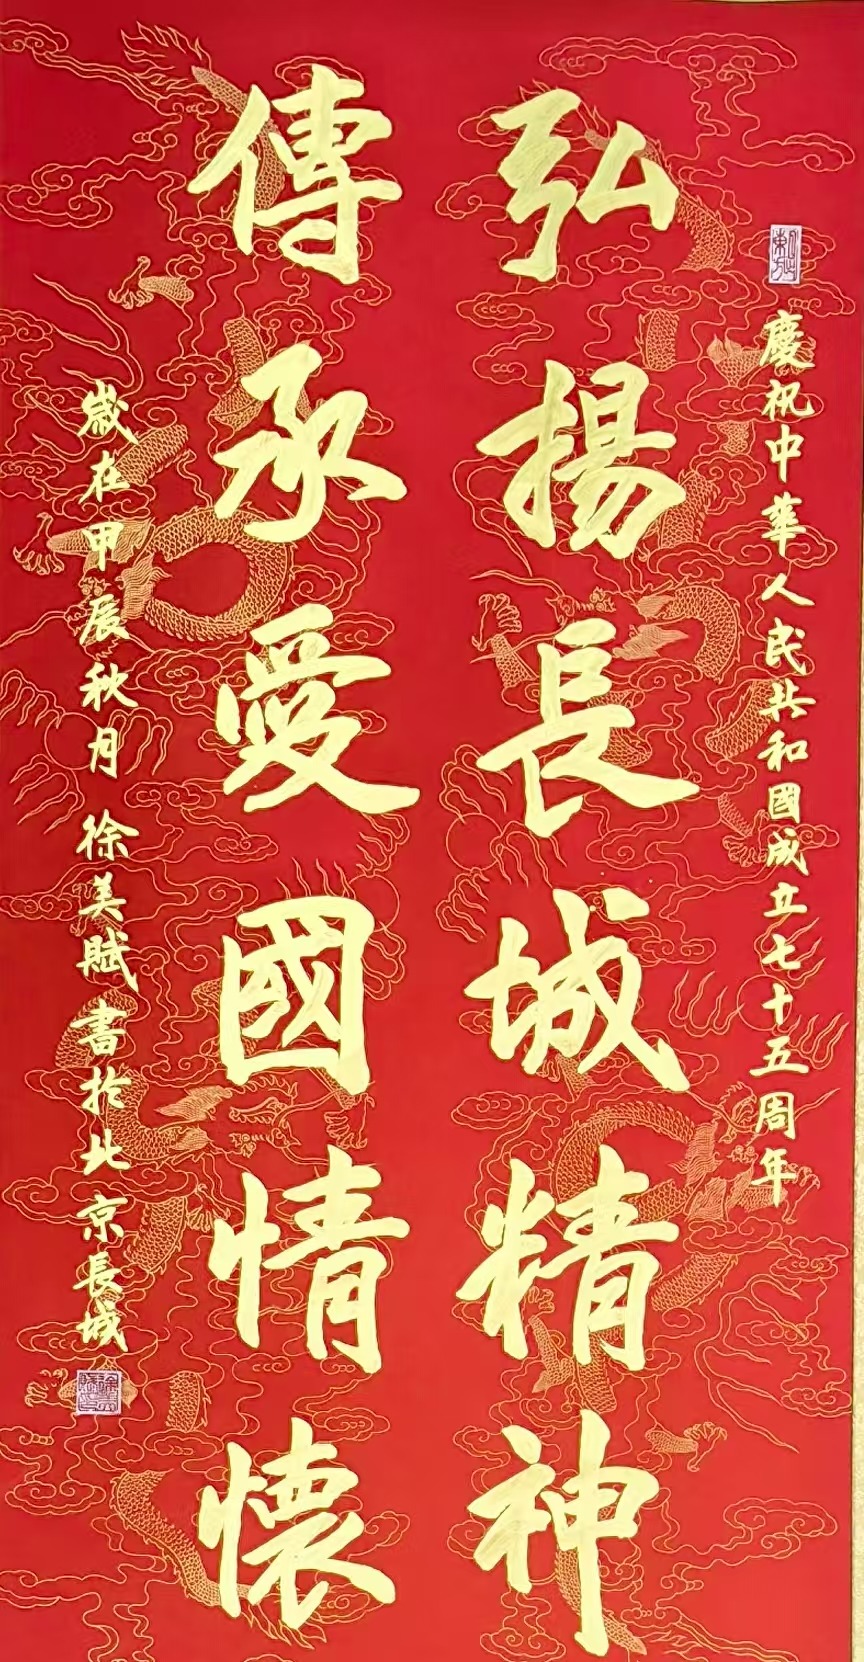 慶祝中華人民共和國成立七十五周年
弘揚長城精神
傳承愛國情懷
歲在甲辰秋月徐美賦書於北京長城